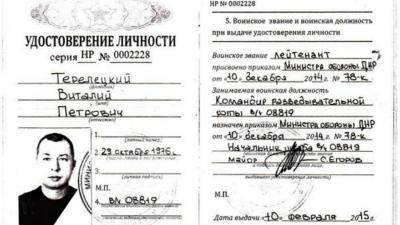 НР № 0002228
УДОСТОВЕРЕНИЕ ЛИЧНОСТИ
серия НР № 0002228
Терелецкий
(фамилия)
Виталий
(имя)
Петрович
(отчество)
1.
(личный номер)
2. 29 октября 1976 г.
3.
(личная подпись)
4.
в/ч 08819
5. Воинское звание и воинская должность
при выдаче удостоверения личности
Воинское звание лейтенант
присвоено приказом Министра обороны ДНР
от «10» декабря 2014 г. № 78-к
Занимаемая воинская должность
Командир разведывательной
роты в/ч 08819
назначен приказом Министра обороны ДНР
от «10» декабря 2014 г. № 78-к
Начальник штаба в/ч 08819
майор С.Егоров
М.П.
Дата выдачи «10» февраля 2015 г.